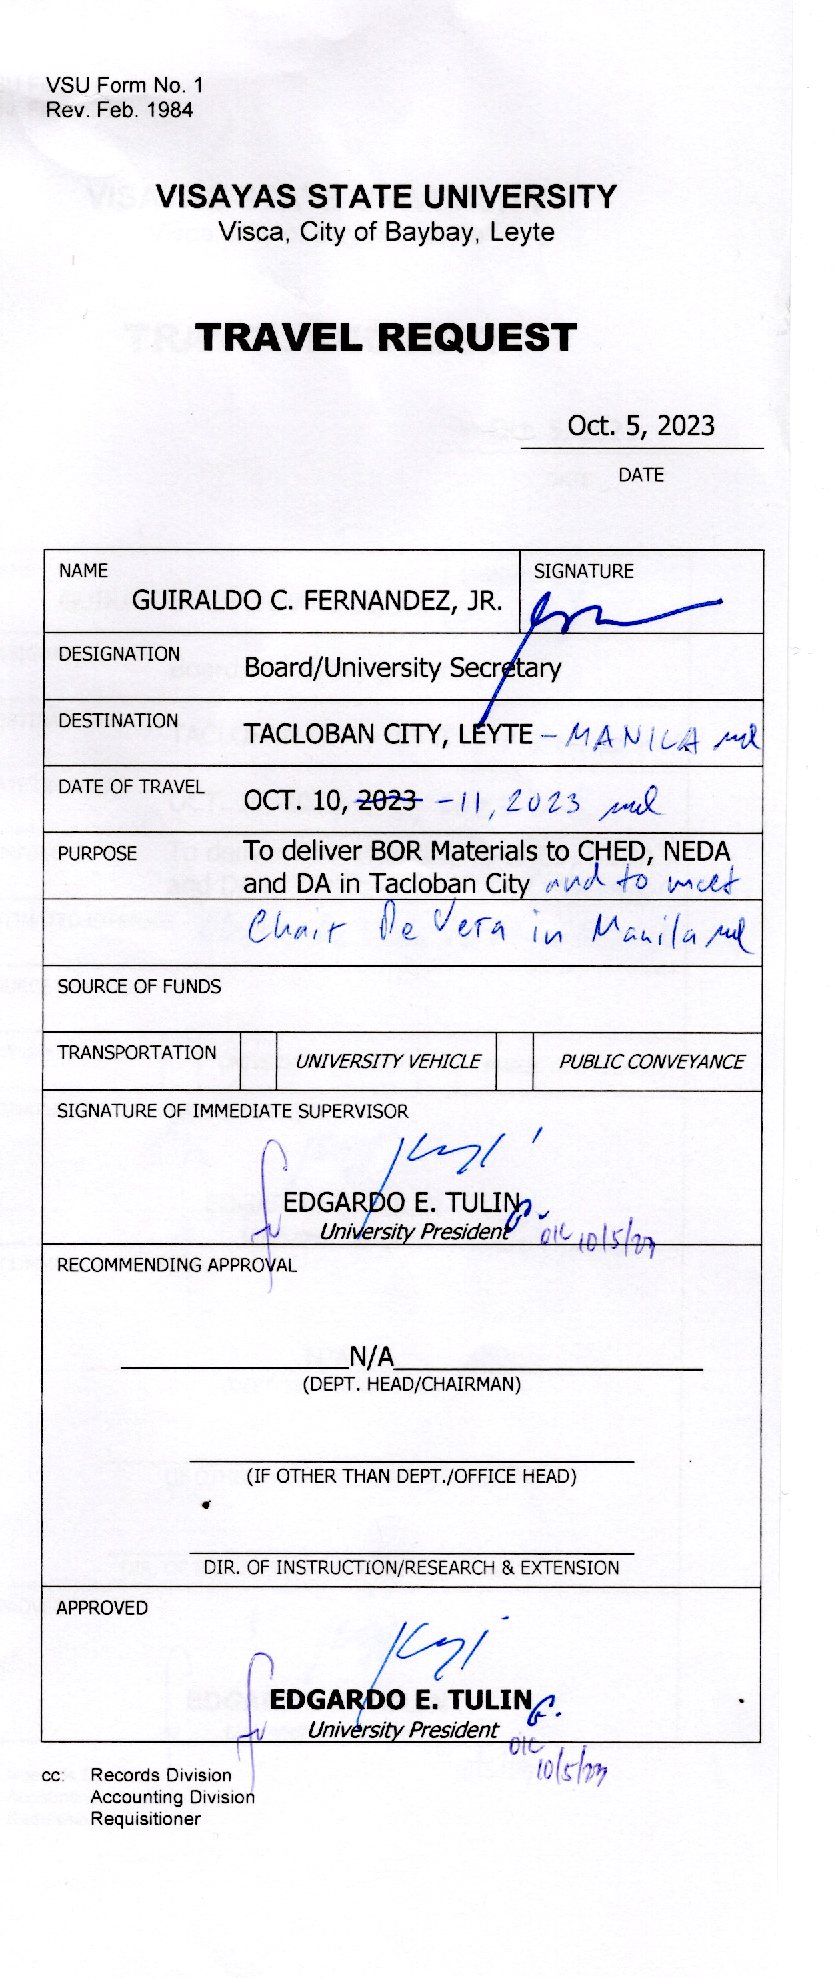 VSU Form No. 1
Rev. Feb. 1984
VISAYAS STATE UNIVERSITY
Visca, City of Baybay, Leyte
TRAVEL REQUEST
Oct. 5, 2023
DATE
NAME
SIGNATURE
GUIRALDO C. FERNANDEZ, JR.
DESIGNATION
Board/University Secretary
DESTINATION
TACLOBAN CITY, LEYTE – MANILA
DATE OF TRAVEL
OCT. 10, 2023 -11, 2023
PURPOSE
To deliver BOR Materials to CHED, NEDA
and DA in Tacloban City and to meet
Chair De Vera in Manila
SOURCE OF FUNDS
TRANSPORTATION
UNIVERSITY VEHICLE
PUBLIC CONVEYANCE
SIGNATURE OF IMMEDIATE SUPERVISOR
EDGARDO E. TULIN
University President
OIC 10/5/23
RECOMMENDING APPROVAL
N/A
(DEPT. HEAD/CHAIRMAN)
(IF OTHER THAN DEPT./OFFICE HEAD)
DIR. OF INSTRUCTION/RESEARCH & EXTENSION
APPROVED
EDGARDO E. TULIN
University President
OIC
10/5/23
cc: Records Division
Accounting Division
Requisitioner